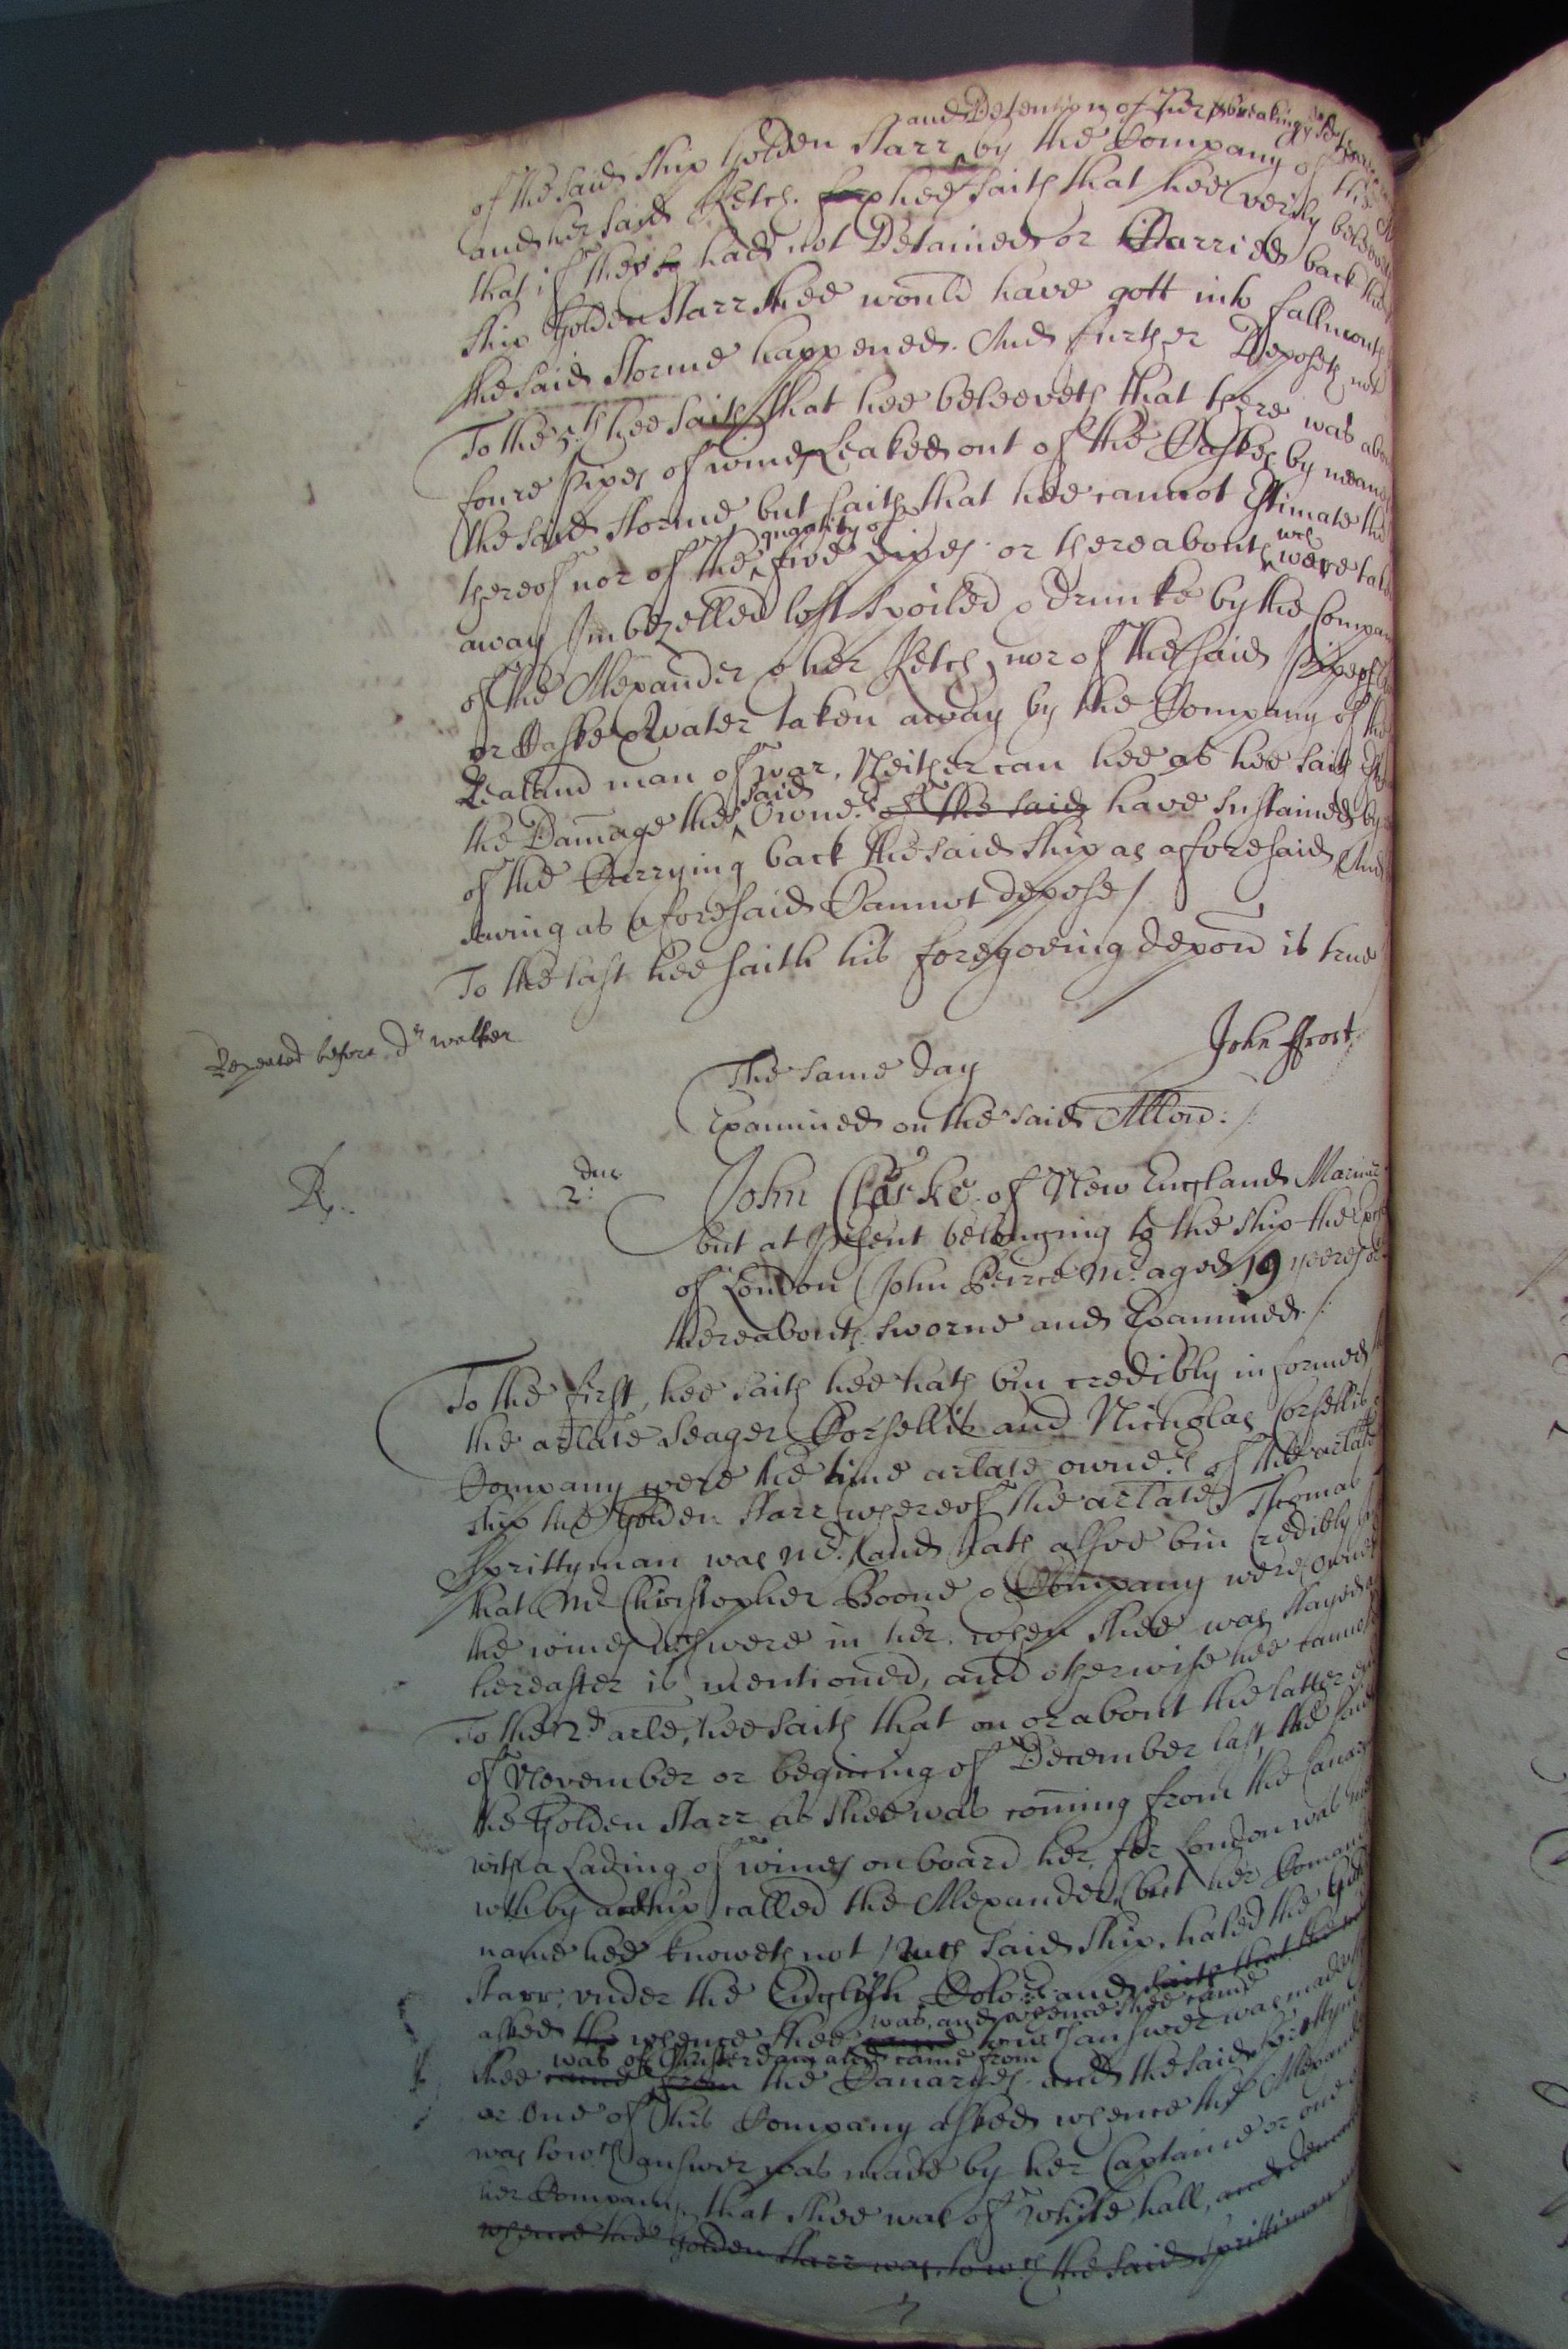 and Detention of her & breaking
of the said Ship Golden Starr by the Company of the
and her said Ketch. for hee saith that hee verily beleeveth
that if they had not Detained or Carried back the
ship Golden Starr shee would have gott into Fallmouth
the said Storme happened. And further Deposeth not
To the 5th hee saith that hee beleeveth that there was about
foure Pipes of wines Leaked out of the Caskes by meanes
the said Storme, but saith that hee cannot Estimate the
thereof nor of the quantity of five pipes or thereabouts wch were taken
away Imbezelled lost spoiled & drunke by the Company
of the Alexander & her Ketch, nor of the said Pipe
or Caske water taken away by the Company of the
Zealand man of war, Neither can hee as hee saith
the Damage the said Owners of the said have sustained by
of the Carrying back the said Ship as aforesaid And
as aforesaid Cannot depose/
To the last hee saith his foregoeing depon is true
Repeated before Dr walker
John Ffrost
The same day
Examined on the said Allon:/
R. 2:
John Clarke of New England Mariner
but at present belonging to the ship the
of London (John Peirce Mr. aged 19 yeeres or
thereabouts sworne and Examined./
To the first, hee saith hee hath bin credibly informed
the arlate Seager Corsellis and Nicholas Corsellis
Company were the time arlate owners of the arlate
ship the Golden Starr whereof the arlate Thomas
Sprittyman was Mr. and hath alsoe bin credibly
that Mr Christopher Boone & Company were Owners
the wines wch were in her when shee was stayed
hereafter is mentioned, and otherwise hee cannot
To the 2d arle, hee saith that on or about the latter end
of November or begining of December last, the said
the Golden Starr as shee was coming from the Canaries
with a Lading of wines on board her for London was
wth by a ship called the Alexander, (but her Comander
name hee knoweth not) wch said Ship, haled the
Starr, under the English Colors and saith that the
was, and whence shee came
asked the whence shee came to wch answer was made
was of Amsterdam and came from
shee came from the Canaryes and the said Sprittyman
or one of his Company asked whence the Alexander
was to wch answer was made by her Captaine or one
her Company, that shee was of White hall, and
whence the golden Starr was, to wch the said Sprittiman